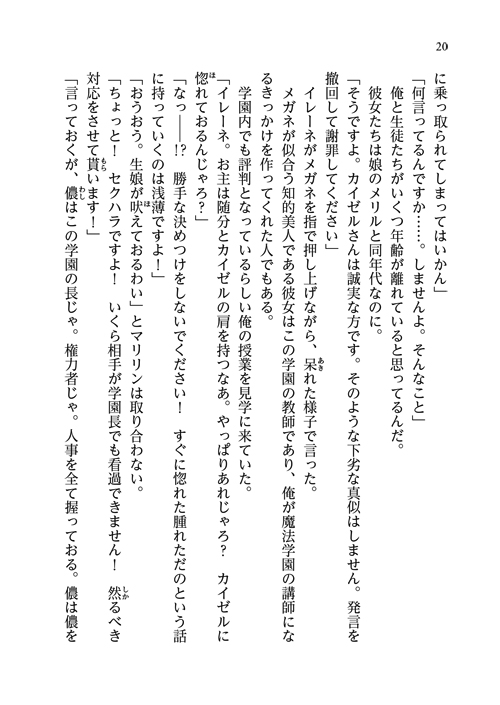 20
に乗っ取られてしまってはいかん」
「何言ってるんですか……。しませんよ。そんなこと」
俺と生徒たちがいくつ年齢が離れていると思ってるんだ。
彼女たちは娘のメリルと同年代なのに。
「そうですよ。カイゼルさんは誠実な方です。そのような下劣な真似はしません。発言を
撤回して謝罪してください」
イレーネがメガネを指で押し上げながら、呆れた様子で言った。
メガネが似合う知的美人である彼女はこの学園の教師であり、俺が魔法学園の講師にな
るきっかけを作ってくれた人でもある。
学園内でも評判となっているらしい俺の授業を見学に来ていた。
「イレーネ。お主は随分とカイゼルの肩を持つなあ。やっぱりあれじゃろ？　カイゼルに
惚れておるんじゃろ？」
「なっ――!?　勝手な決めつけをしないでください！　すぐに惚れた腫れただのという話
に持っていくのは浅薄ですよ！」
「おうおう。生娘が吠えておるわい」とマリリンは取り合わない。
「ちょっと！　セクハラですよ！　いくら相手が学園長でも看過できません！　然るべき
対応をさせて貰います！」
「言っておくが、儂はこの学園の長じゃ。権力者じゃ。人事を全て握っておる。儂は儂を